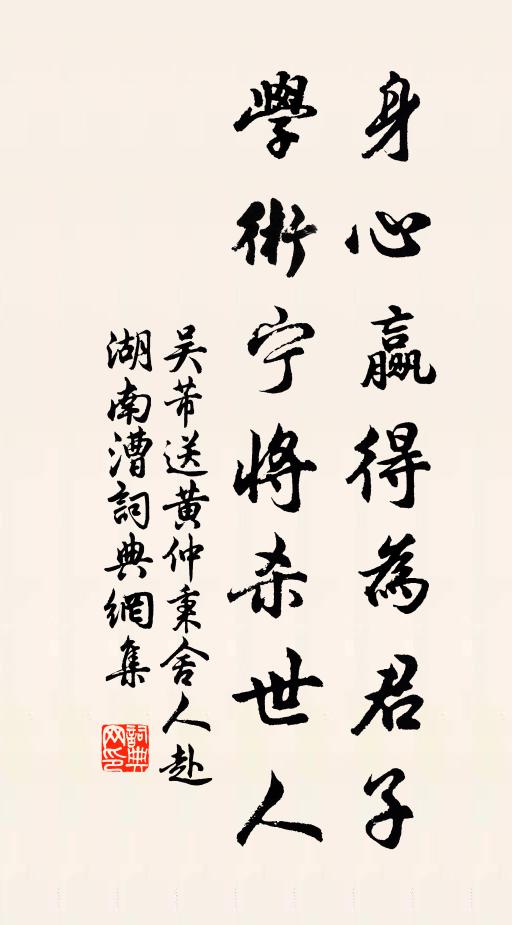 身心贏得為君子
學術宁將杀世人
吴芾送黄仲秉舍人赴
湖南漕詞典網集
詞典网印